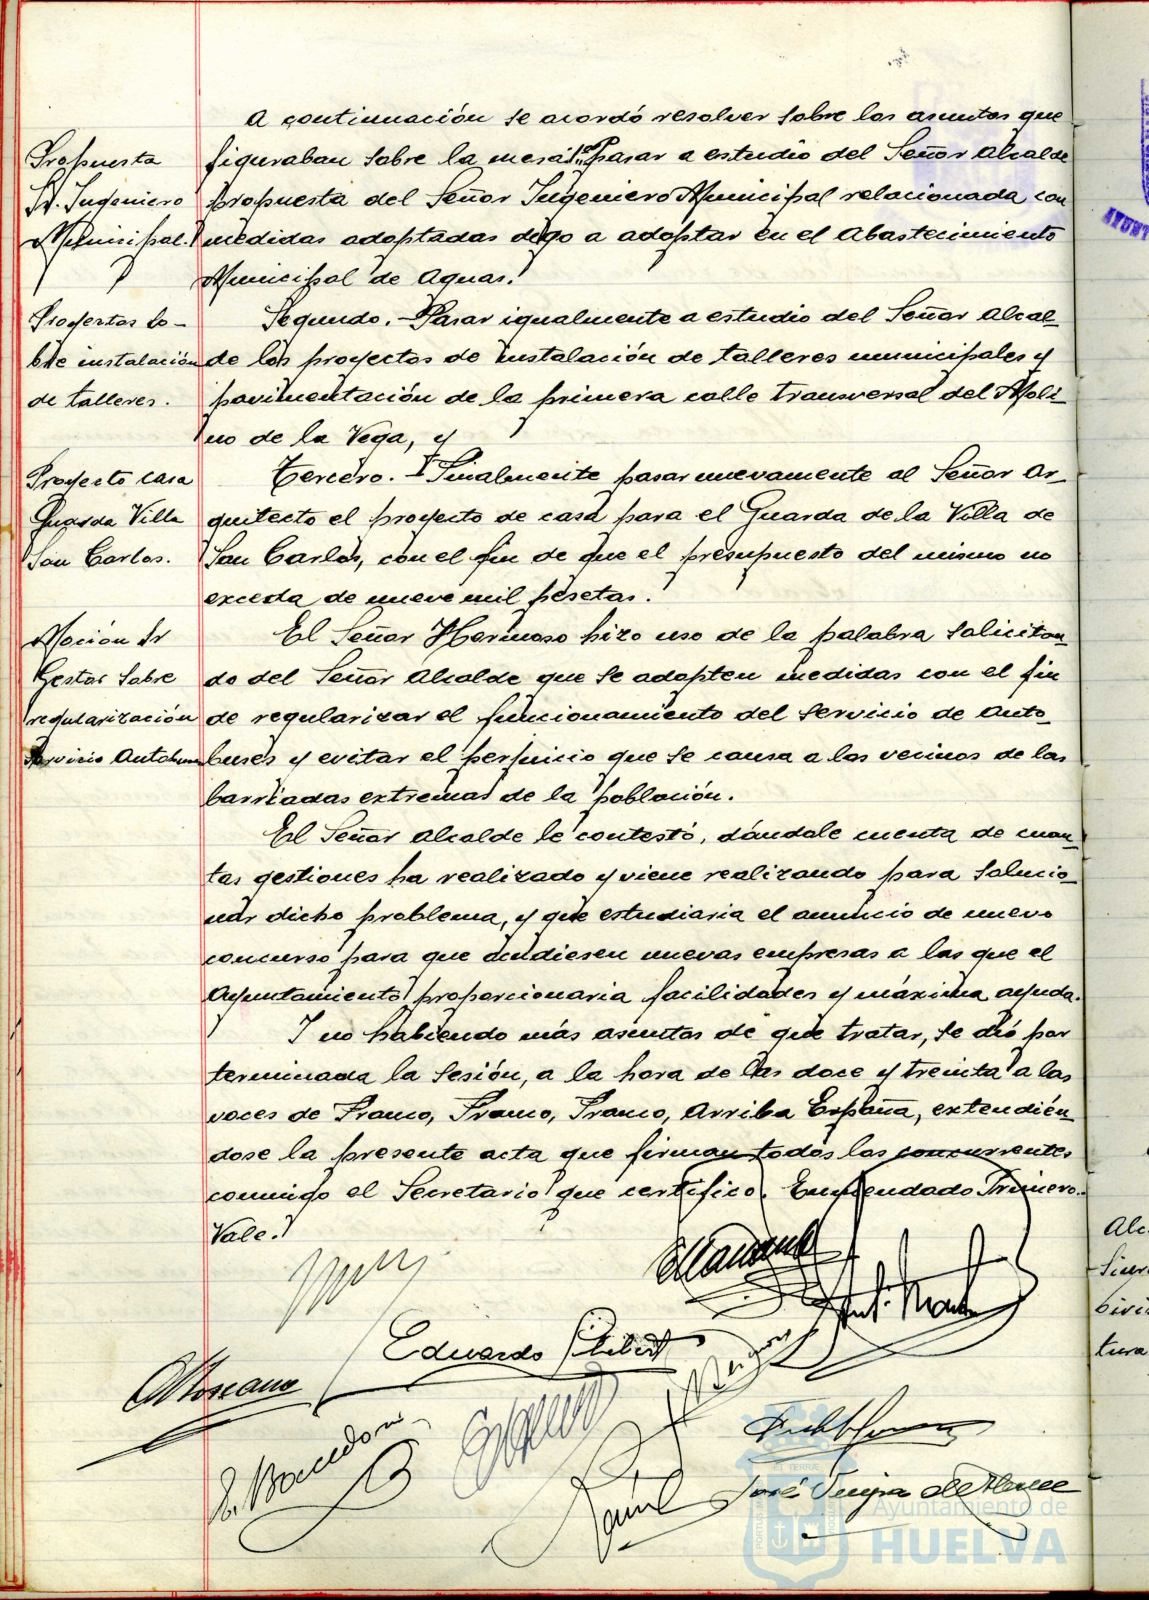 A continuación se acordó resolver sobre los asuntos que
Propuesta
Sr. Ingeniero
Municipal.
figuraban sobre la mesa: 1º Pasar a estudio del Señor Alcalde
propuesta del Señor Ingeniero Municipal relacionada con
medidas adoptadas digo a adoptar en el Abastecimiento
Municipal de Aguas.
Proyectos so-
bre instalación
de talleres.
Segundo.- Pasar igualmente a estudio del Señor Alcal-
de los proyectos de instalación de talleres municipales y
pavimentación de la primera calle transversal del Moli-
no de la Vega, y
Proyecto casa
Guarda Villa
San Carlos.
Tercero.- Finalmente pasar nuevamente al Señor Ar-
quitecto el proyecto de casa para el Guarda de la Villa de
San Carlos, con el fin de que el presupuesto del mismo no
exceda de nueve mil pesetas.
Moción Sr
Gestor sobre
regularización
Servicio Autobuses
El Señor Hermoso hizo uso de la palabra solicitan-
do del Señor Alcalde que se adopten medidas con el fin
de regularizar el funcionamiento del servicio de Auto-
buses y evitar el perjuicio que se causa a los vecinos de las
barriadas extremas de la población.
El Señor Alcalde le contestó, dándole cuenta de cuan-
tas gestiones ha realizado y viene realizando para solucio-
nar dicho problema, y que estudiaria el anuncio de nuevo
concurso para que acudiesen nuevas empresas a las que el
Ayuntamiento proporcionaria facilidades y máxima ayuda.
Y no habiendo más asuntos de que tratar, se dió por
terminada la sesión, a la hora de las doce y treinta a las
voces de Franco, Franco, Franco, Arriba España, extendién-
dose la presente acta que firman todos los concurrentes
conmigo el Secretario que certifico. Enmendado Primero.
Vale.
Eduardo
José
Ayuntamiento de
HUELVA